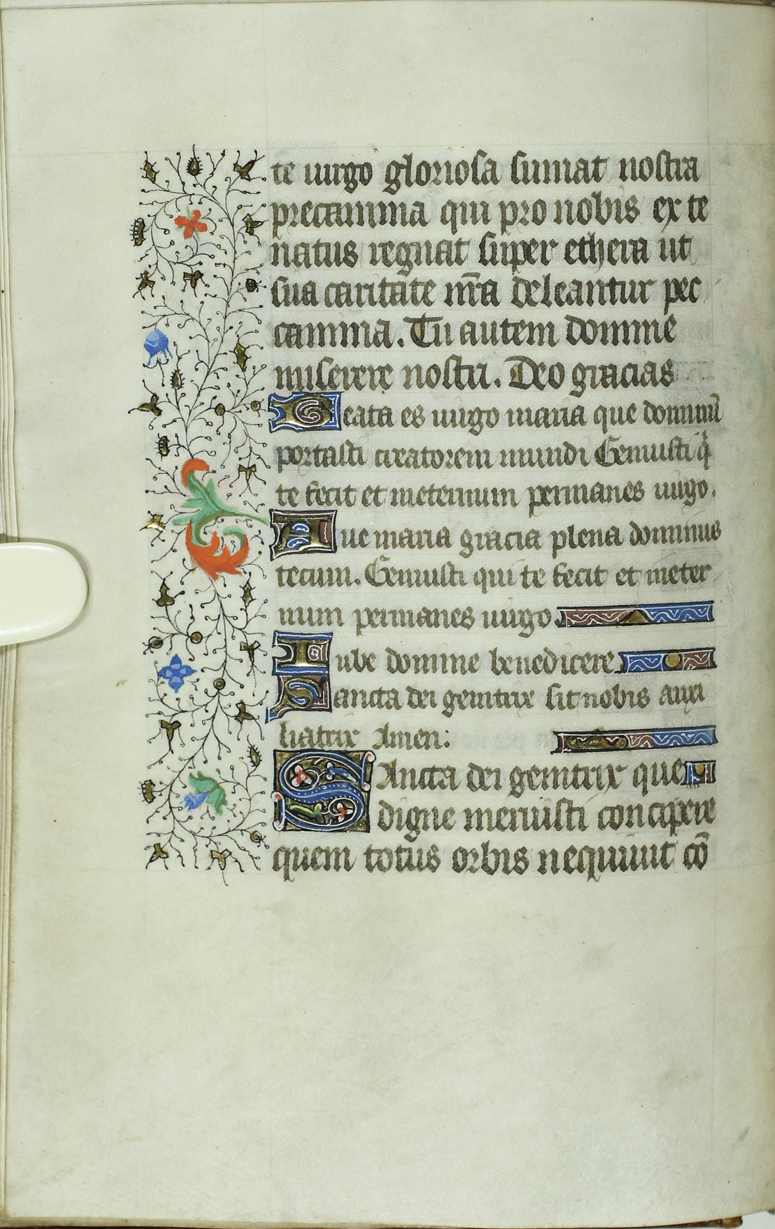 te uirgo gloriosa sumat nostra
precamina qui pro nobis ex te
natus regnat super ethera ut
sua caritate nr̃a deleantur pec
camina. Tu autem domine
miserere nostri. Deo gracias
Beata es uirgo maria que dominū
portasti creatorem mundi Genuisti q̇
te fecit et ineternum permanes uirgo.
Aue maria gracia plena dominus
tecum. Genuisti qui te fecit et ineter
num permanes uirgo.
Iube domine benedicere.
Sancta dei genitrix sit nobis auxi
liatrix Amen:
Sancta dei genitrix que
digne meruisti concipere
quem totus orbis nequiuit cō